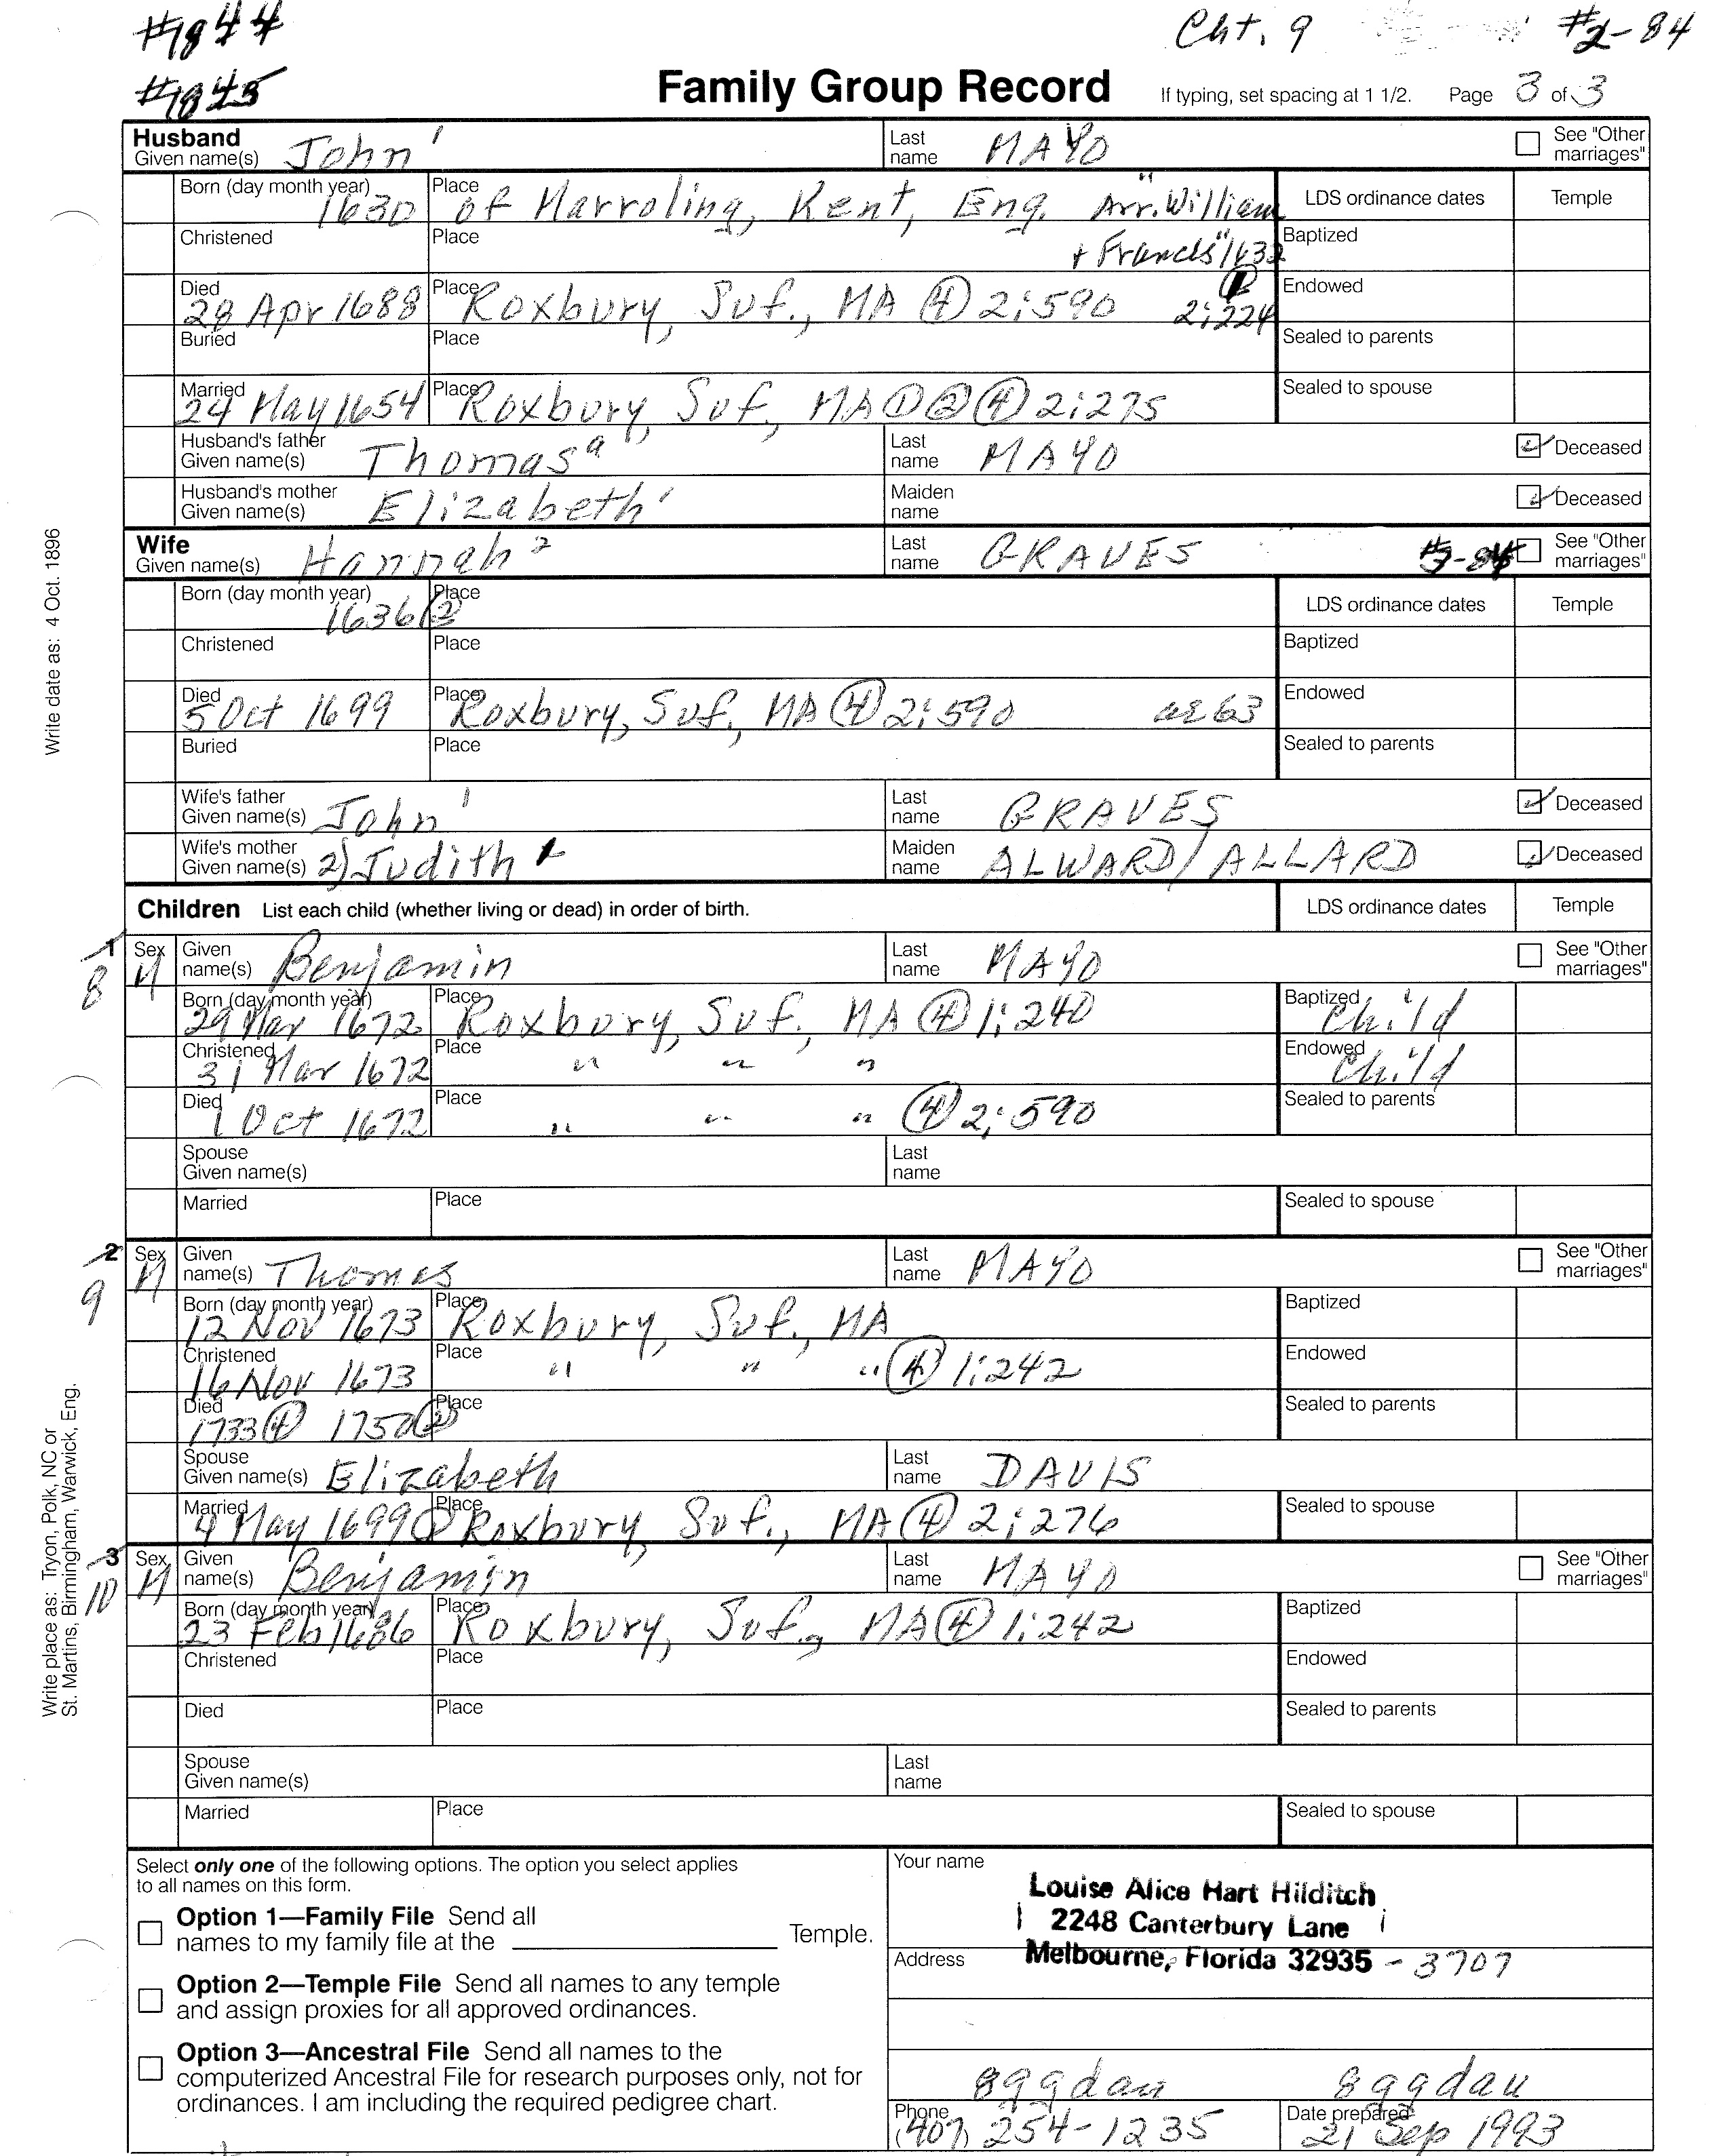 #1844 Cht. 9 #2-84
#1845 Family Group Record If typing, set spacing at 1 1/2. Page 3 of 3
Husband Given name(s) John ' Last name MAYO See "Other marriages"
Born (day month year) 1630 Place of Harroling, Kent, Eng. Arr. "William LDS ordinance dates Temple
Christened Place + Francis" 1632 Baptized
Died 28 Apr 1688 Place Roxbury, Suf., MA ④ 2:590 2:224 Endowed
Buried Place Sealed to parents
Married 24 May 1654 Place Roxbury, Suf., MA ① ② ④ 2:275 Sealed to spouse
Husband's father Given name(s) Thomas a Last name MAYO Deceased
Husband's mother Given name(s) Elizabeth ' Maiden name Deceased
Wife Given name(s) Hannah 2 Last name GRAVES #3-84 See "Other marriages"
Born (day month year) 1636 ② Place LDS ordinance dates Temple
Christened Place Baptized
Died 5 Oct 1699 Place Roxbury, Suf., MA ④ 2:590 ae 63 Endowed
Buried Place Sealed to parents
Wife's father Given name(s) John 1 Last name GRAVES Deceased
Wife's mother Given name(s) 2) Judith Maiden name ALWARD / ALLARD Deceased
Children List each child (whether living or dead) in order of birth. LDS ordinance dates Temple
1 8 Sex M Given name(s) Benjamin Last name MAYO See "Other marriages"
Born (day month year) 29 Mar 1672 Place Roxbury, Suf., MA ④ 1:240 Baptized Child
Christened 31 Mar 1672 Place " " " Endowed Child
Died 1 Oct 1672 Place " " " ④ 2:590 Sealed to parents
Spouse Given name(s) Last name
Married Place Sealed to spouse
2 9 Sex M Given name(s) Thomas Last name MAYO See "Other marriages"
Born (day month year) 12 Nov 1673 Place Roxbury, Suf., MA Baptized
Christened 16 Nov 1673 Place " " " ④ 1:242 Endowed
Died 1733 ④ 1750 ② Place Sealed to parents
Spouse Given name(s) Elizabeth Last name DAVIS
Married 4 May 1699 Place Roxbury, Suf., MA ④ 2:276 Sealed to spouse
3 10 Sex M Given name(s) Benjamin Last name MAYO See "Other marriages"
Born (day month year) 23 Feb Place Roxbury, Suf., MA ④ 1:242 Baptized
Christened Place Endowed
Died Place Sealed to parents
Spouse Given name(s) Last name
Married Place Sealed to spouse
Write date as: 4 Oct. 1896
Write place as: Tryon, Polk, NC or
St. Martins, Birmingham, Warwick, Eng.
Select only one of the following options. The option you select applies
to all names on this form.
Option 1—Family File Send all
names to my family file at the Temple.
Option 2—Temple File Send all names to any temple
and assign proxies for all approved ordinances.
Option 3—Ancestral File Send all names to the
computerized Ancestral File for research purposes only, not for
ordinances. I am including the required pedigree chart.
Your name Louise Alice Hart Hilditch
2248 Canterbury Lane
Address Melbourne, Florida 32935 - 3707
Phone (407) 254-1235 Date prepared 21 Sep 1993